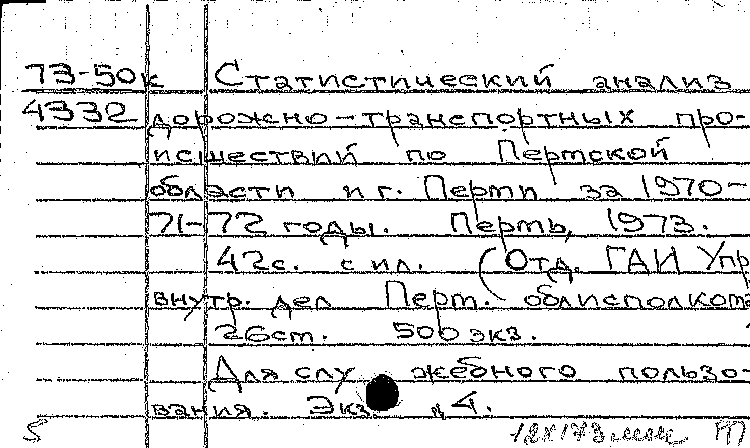 73-50к Статистический анализ
4332 дорожно-транспортных про-
исшествий по Пермской
области и г. Перми за 1970-
71-72 годы. Пермь, 1973.
42с. с ил. (Отд. ГАИ Упр
внутр. дел Перм. облисполкома
26см. 500 экз.
Для служебного пользо-
вания. Экз. 4.
5